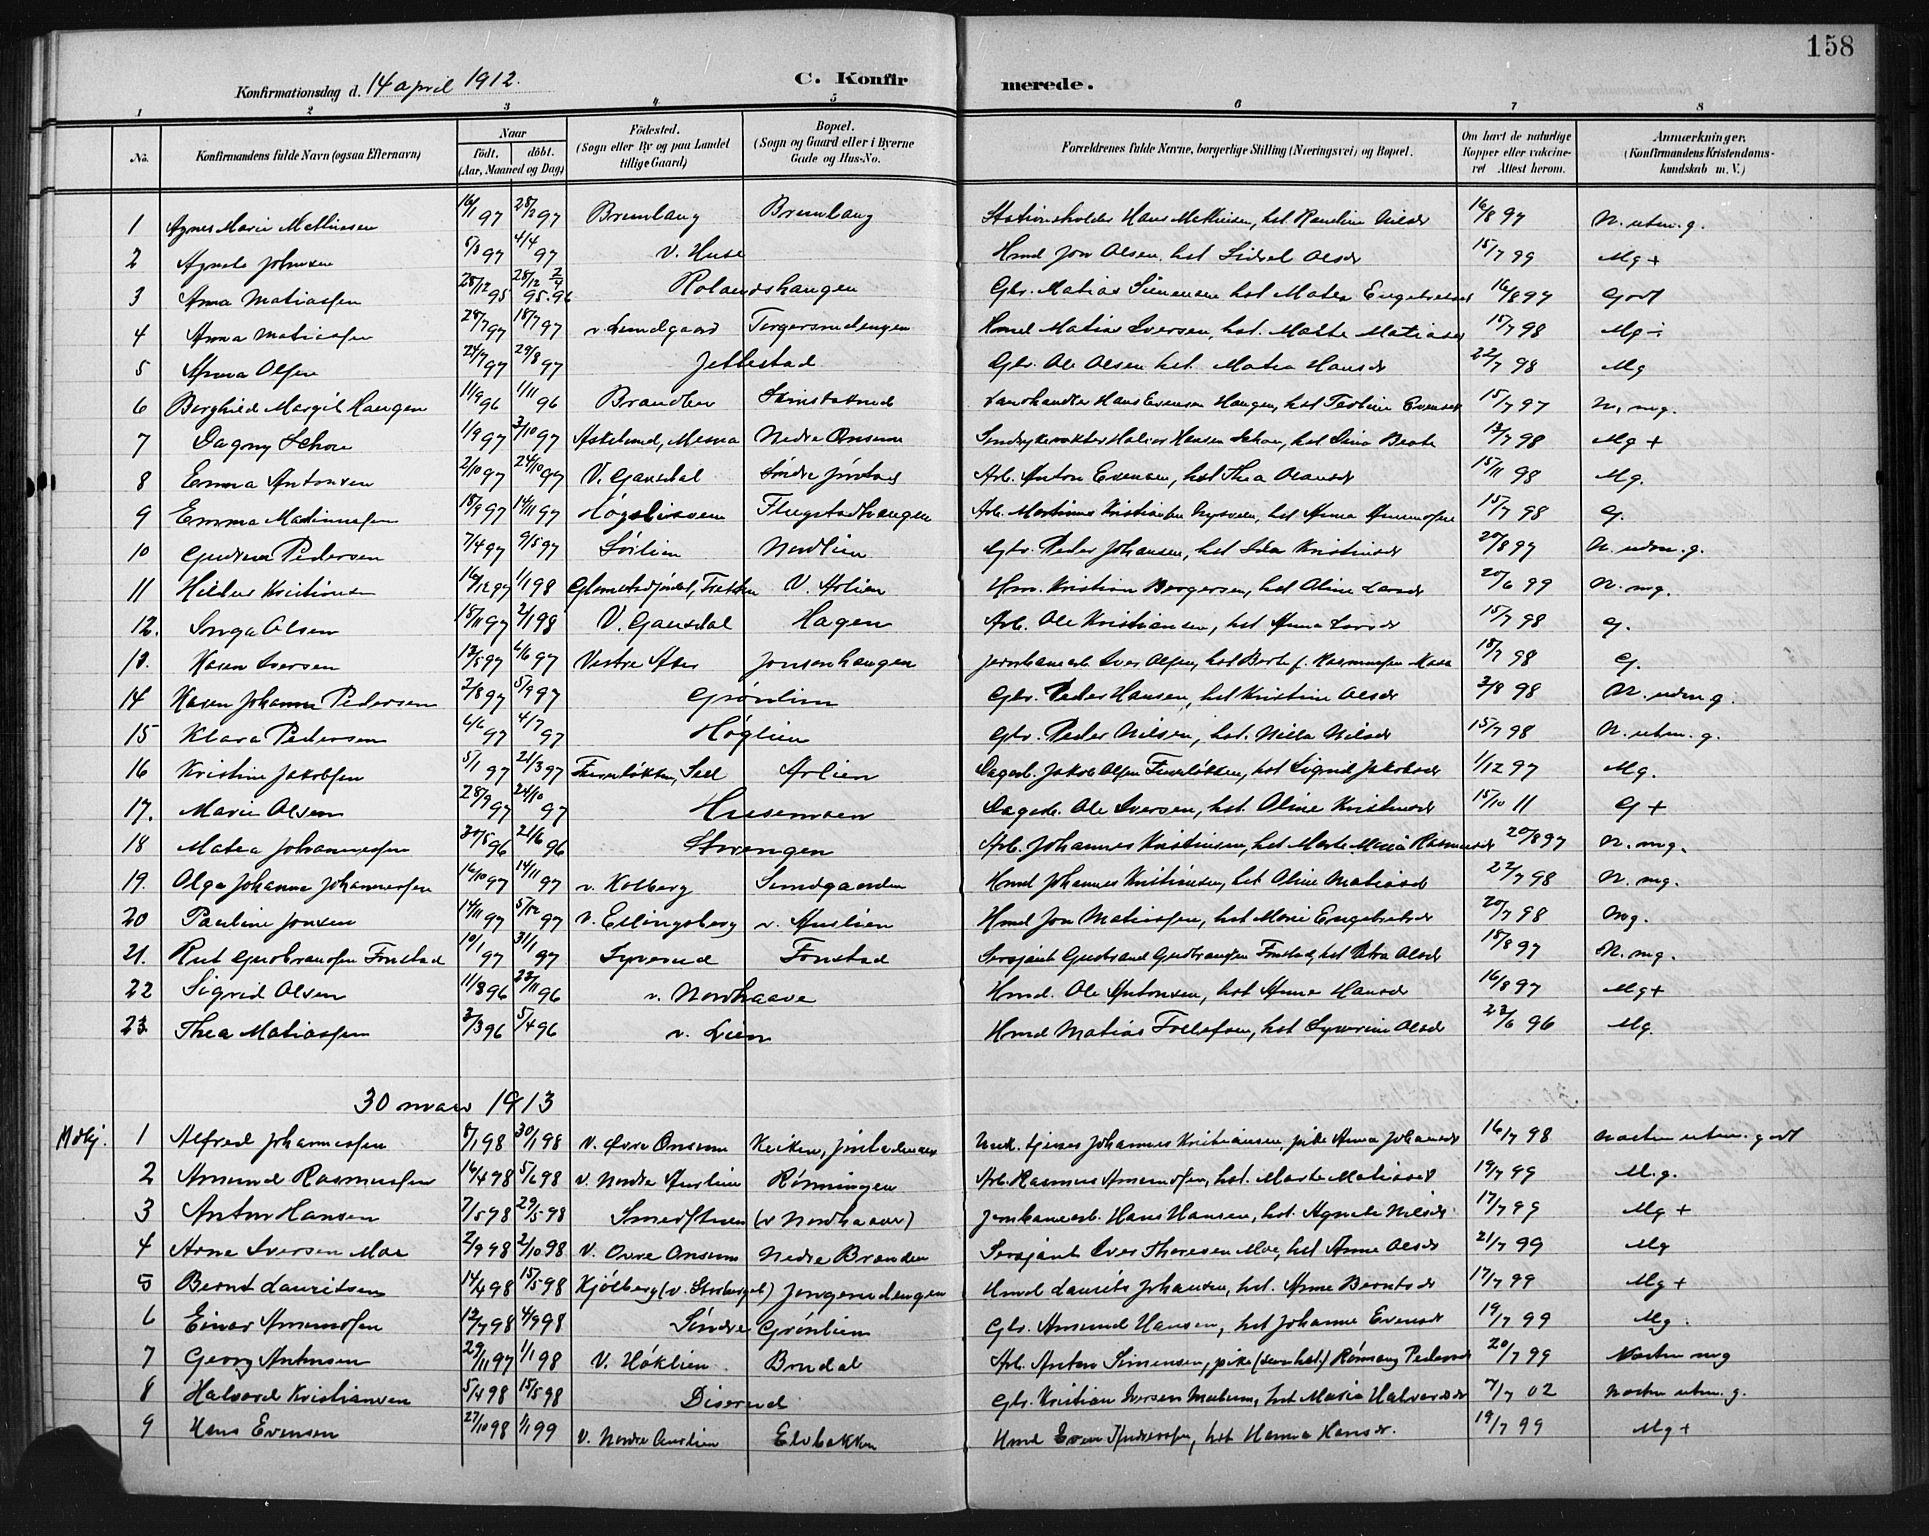 158
Konfirmationsdag d. 14 april 1912.
C. Konfir merede.
1 2 3 4 5 6 7 8
No.
Konfirmandens fulde Navn (ogsaa Efternavn)
Naar
født. døbt.
(Aar, Maaned og Dag)
Fødested.
(Sogn eller By og paa Landet
tillige Gaard)
Bopæl.
(Sogn og Gaard eller i Byerne
Gade og Hus-No.
Forældrenes fulde Navne, borgerlige Stilling (Næringsvei) og Bopæl.
Om havt de naturlige
Kopper eller vakcine-
ret Attest herom.
Anmærkninger.
(Konfirmandens Kristendoms-
kundskab m. V.)
1 Agnes Marie Mathiesen 16/1 97 28/2 97 Hans Mathisen, hst. 16/8 97 N. utm. g.
2 Agnete Johnsen 5/3 97 4/4 97 v. Huse Hmd Jon Olsen, hst Sidsel Olsdr 15/7 99 Mg +
3 Anna Matiassen 28/12 95 28/12 95. 2/4 96 Rolandshaugen Gbr. Matias Simensen hst Matea Engebretsdr 16/8 97 Godt
4 Anna Matiassen 28/7 97 18/7 97 v. Lundgaard Torgersrudengen Hmd Matias Iversen, hst. Matiasdr 15/7 98 Mg ÷
5 Anna Olsen 24/7 97 29/8 97 Jettestad Gbr. Ole Olsen hst. Matea Hansdr 22/7 98 Mg
6 Borghild Margit Haugen 11/9 96 1/11 96 Landhandler Hans Evensen Haugen, hst Evensdr 15/7 97 N. mg.
7 Dagny Schou 1/9 97 3/10 97 Mesna Nedre Onsum Hansen Schou, hst Beate 98 Mg +
8 Emma Antonsen 2/10 97 24/10 97 V. Gausdal Søndre Jørstad Arb. Anton Evensen, hst Thea Olausdr 15/11 98 Mg.
9 Emma Martinussen 18/9 97 14/11 97 Flugstadhaugen Arb. Martinus Kristiansen Nysveen, hst Anna Amundsen 15/7 98 G.
10 Gudrun Pedersen 7/4 97 9/5 97 Sørlien Nordlien Gbr. Peder Johansen, hst Ida Kristiansdr 20/8 97 N. udm. g.
11 Kristiansen 16/12 97 1/1 98 V. Arlien Hmd. Kristian Borgersen, hst Oline Larsdr 20/6 99 N. mg.
12. Inga Olsen 18/11 97 2/1 98 V. Gausdal Hagen Arb. Ole Kristiansen, hst Anna Larsdr 15/7 98 G.
13. Karen Iversen 13/5 97 6/6 97 Vestre Aker Jonsenhaugen Jernbanearb Iver Olsen, hst Berte f. Rasmussen 15/7 98 G.
14 Karen Johanne Pedersen 2/8 97 5/9 97 Grønlien Gbr. Peder Hansen, hst Kristine Olsdr 3/8 98 N. udm g.
15 Klara Pedersen 6/6 97 4/7 97 Høglien Gbr. Peder Nilsen, hst. Nilsdr 15/7 98 N. utm. g.
16 Kristine Jakobsen 5/1 97 21/3 97 Furuløkken, Sell Arlien Dagarb. Jakob Olsen Furuløkken, hst Sigrid Jakobsdr 1/12 97 Mg.
17. Marie Olsen 28/9 97 24/10 97 Husemoen Dagarb. Ole Iversen, hst. Oline Kristiansdr 15/10 11 G +
18 Matea Johannessen 30/5 96 21/6 96 Storengen Arb. Johannes Kristiansen, hst Marte Maria Rasmusdr 20/8 97 N. mg.
19. Olga Johanne Johannessen 16/10 97 14/11 97 v. Kolberg Lundgaarden Hmd Johannes Kristiansen, hst Oline Matiasdr 22/7 98 N. mg.
20 Pauline Jonsen 14/11 97 5/12 97 v. Ellingsberg v. Austlien Hmd Jon Matiassen, hst Marie Engebretsdr 20/7 98 Mg.
21. Rut Gudbrandsen Fonstad 10/1 97 31/1 97 Syverud Fonstad Sersjant Gudbrand Gudbrandsen Fonstad, hst Petra Olsdr 18/8 97 N. mg.
22 Sigrid Olsen 11/8 96 22/11 96 v. Nordhaave Hmd. Ole Antonsen, hst Anne Hansdr 16/8 97 Mg +
23. Thea Matiassen 2/3 96 5/4 96 v. Lien Hmd Matias Tollefsen, hst Syverine Olsdr 22/6 96 Mg.
30 mars 1913
1 Alfred Johannessen 8/1 98 30/1 98 v. Øvre Onsum Johannes Kristiansen, pike Anna Johansdr 16/7 98 Næsten utm. godt
2 Amund Rasmussen 16/4 98 5/6 98 v. Nordre Austlien Rønningen Arb. Rasmus Amundsen, hst. Marte Matiasdr 19/7 99 M.g.
3 Anton Hansen 7/5 98 29/5 98 Smedstuen (v Nordhaave) Jernbanearb. Hans Hansen, hst. Agnete Nilsdr 17/7 99 Mg +
4 Arne Iversen Moe 2/9 98 2/10 98 V. Øvre Onsum Nedre Branden Sersjant Iver Thoresen Moe, hst Anne Olsdr 21/7 99 Mg
5 Bernt Lauritsen 14/4 98 15/5 98 Kjølberg (v. Storberget) Jongerudengen Hmd Laurits Johansen, hst. Anne Berntsdr 17/7 99 Mg +
6 Einar Amundsen 12/7 98 4/9 98 Søndre Grønlien Gbr. Amund Hansen, hst Johanne Evensdr 19/7 99 Mg.
7 Georg Antonsen 29/11 97 1/1 98 V. Høklien Brudal Arb. Anton Simensen, pike (senere hst.) Rønnaug Pedersdr 20/7 99 Næsten mg
8 Halvard Kristiansen 5/4 98 15/5 98 Diserud Gbr. Kristian Iversen hst Maria Halvorsdr 7/7 02 Næsten utm. g.
9 Hans Evensen 27/10 98 1/1 99 v. Nordre Austlien Elvbakken Hmd Even Andreassen, hst Hanna Hansdr. 19/7 99 Mg +